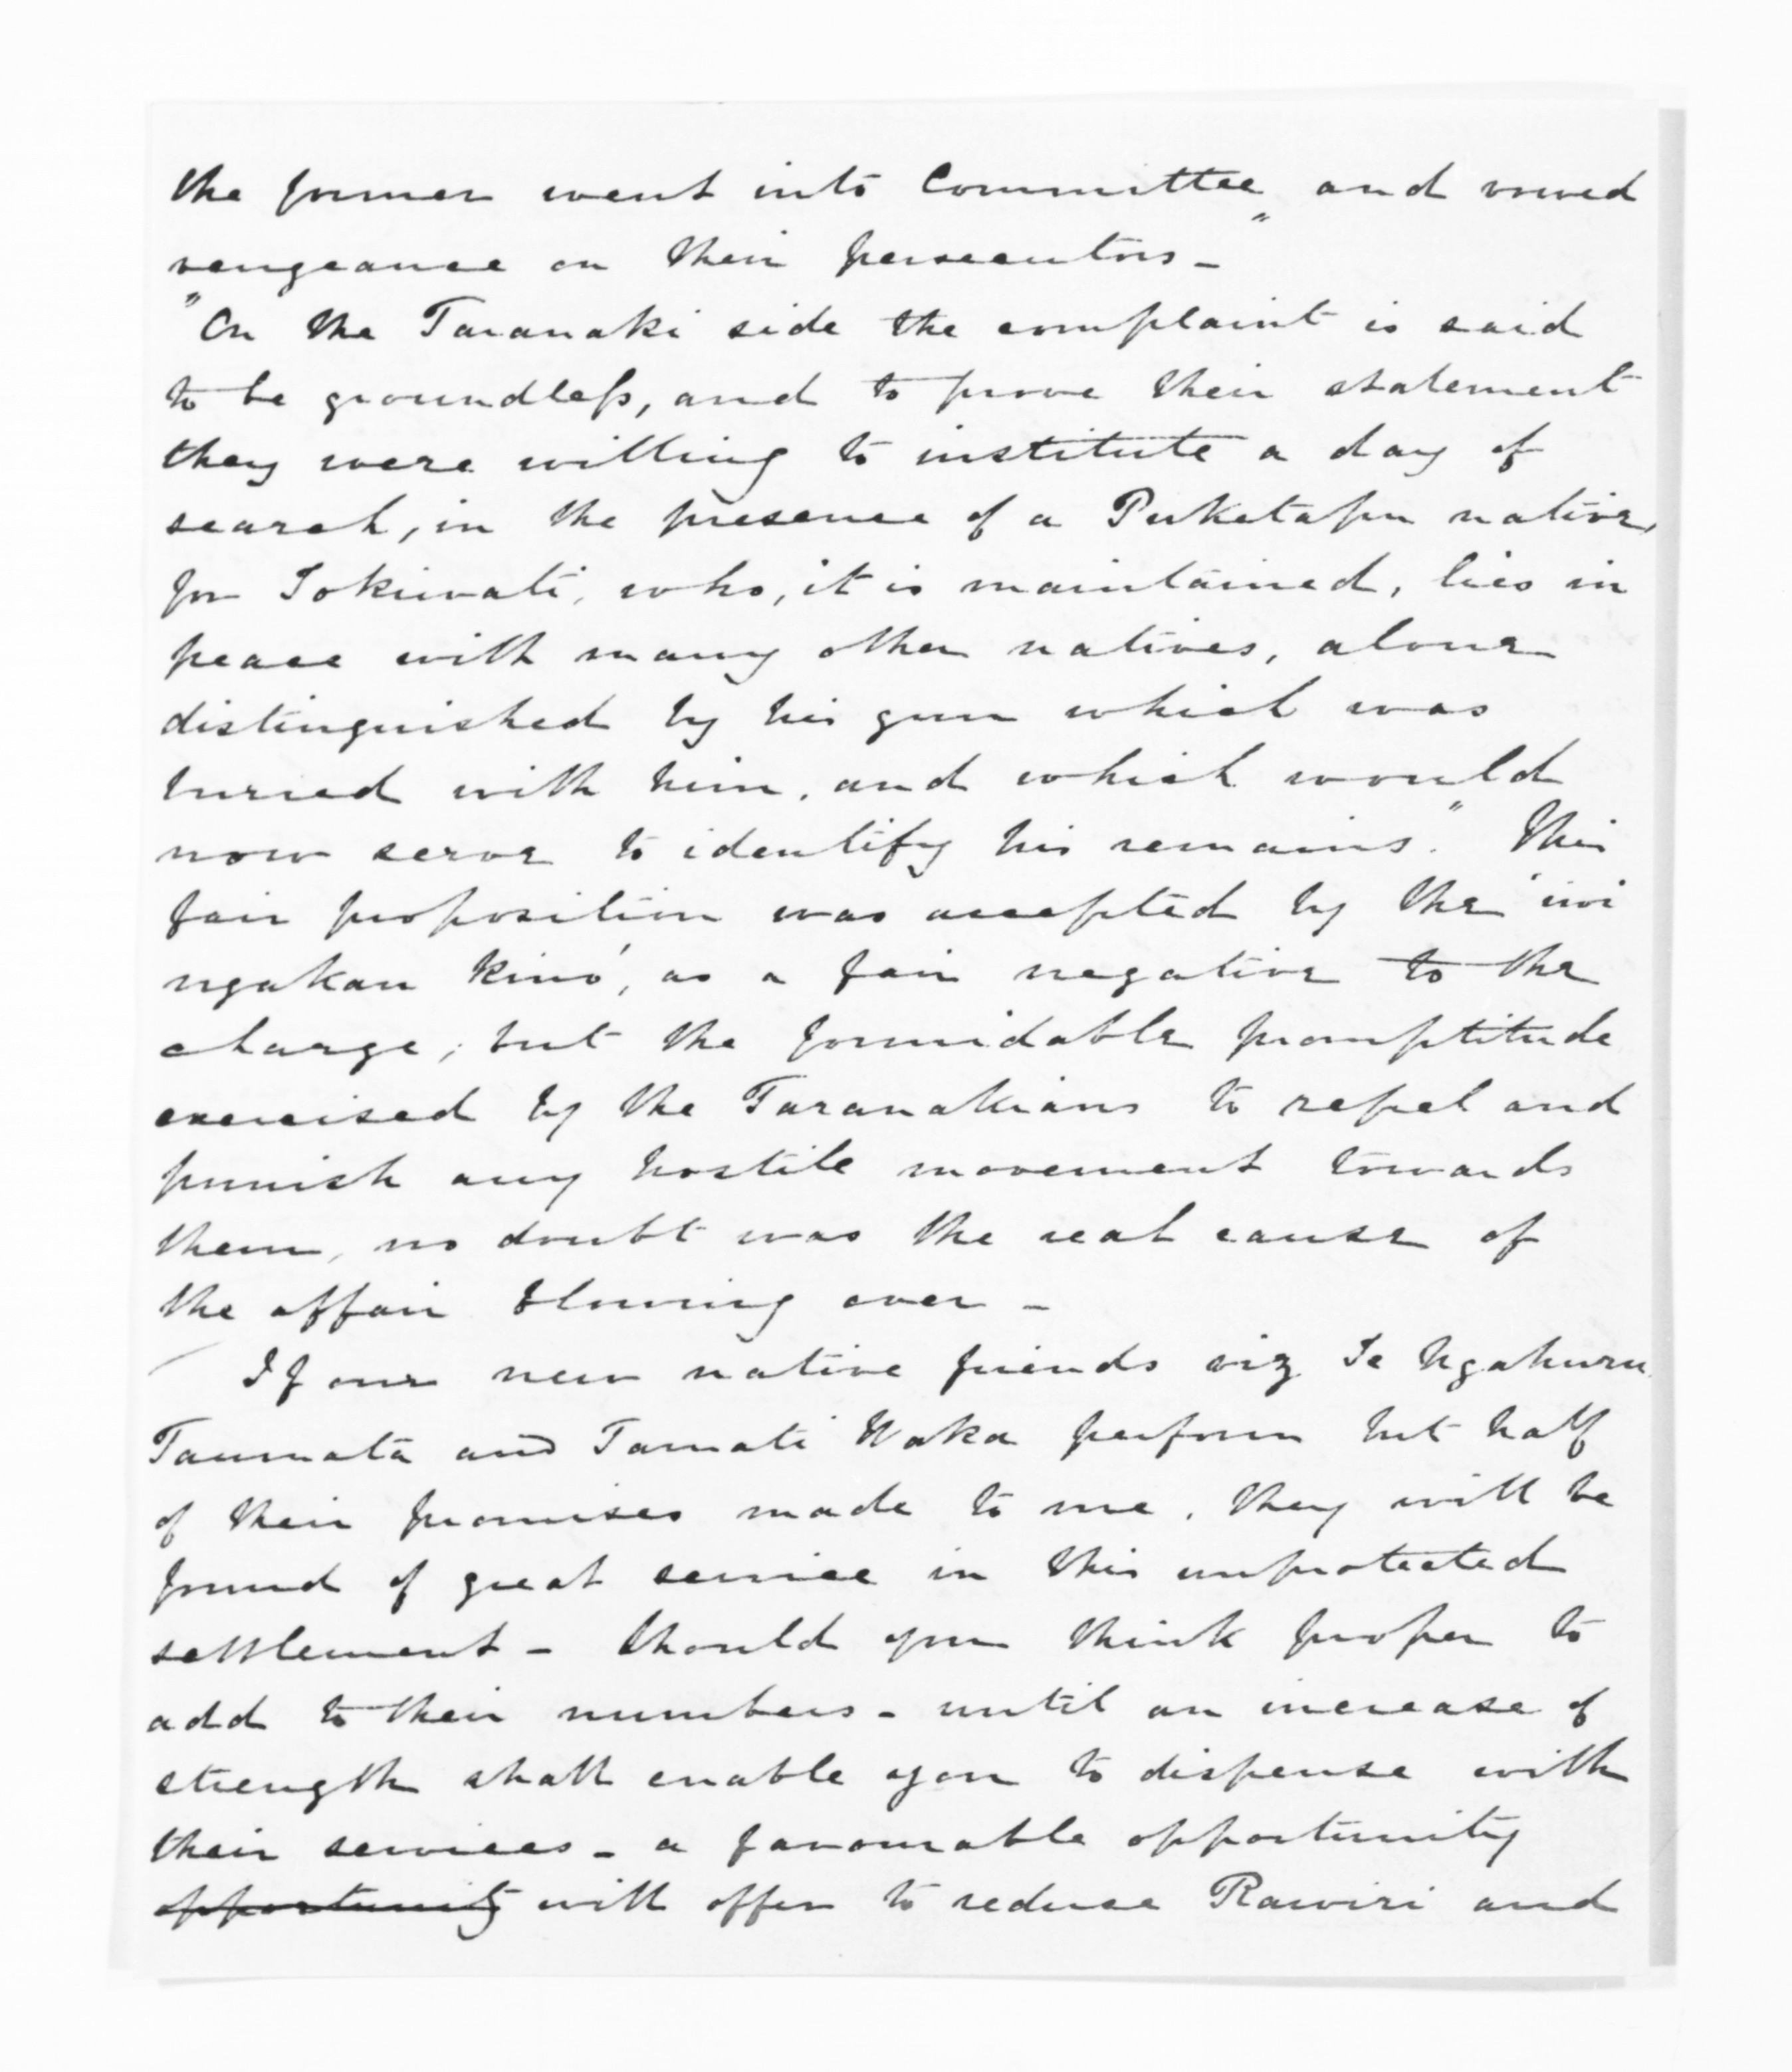 the former went into Committee and vowed
vengeance on their persecutors -"
"On the Taranaki side the complaint is said
to be groundless, and to prove their statement
they were willing to institute a day of
search, in the presence of a Puketapu native,
for Tokiwati, who, it is maintained, lies in
peace with many other natives, alone
distinguished by his gun which was
buried with him, and which would
now serve to identify his remains." This
fair proposition was accepted by the 'iwi
ngakau kino', as a fair negative to the
charge; but the formidable promptitude
exercised by the Taranakians to repel and
punish any hostile movement towards
them, no doubt was the real cause of
the affair blowing over -
If our new native friends viz Te Ngahuru,
Taumata and Tamati Waka perform but half
of their promises made to me, they will be
found of great service in this unprotected
settlement - Should you think proper to
add to their numbers - until an increase of
strength shall enable you to dispense with
their services - a favourable opportunity
opportunity will offer to reduce Rawiri and